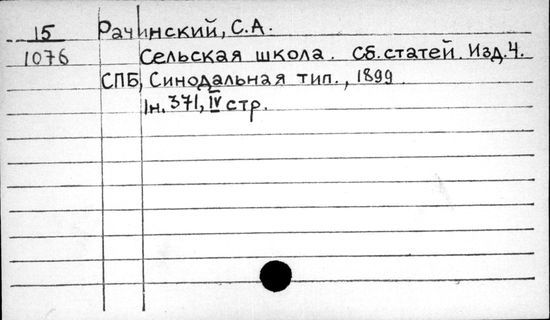 15 Рачинский, С.А.
1076 Сельская школа. Сб. статей. Изд. 4.
СПБ, Синодальная тип., 1899
1н. 371, IV стр.